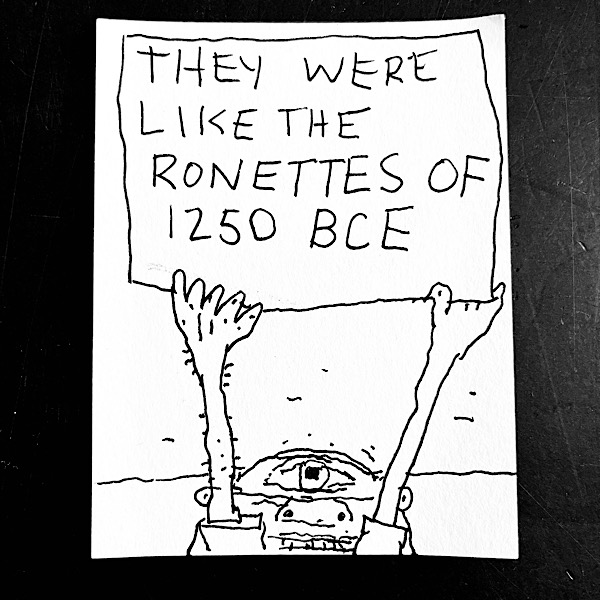 THEY WERE
LIKE THE
RONETTES OF
1250 BCE